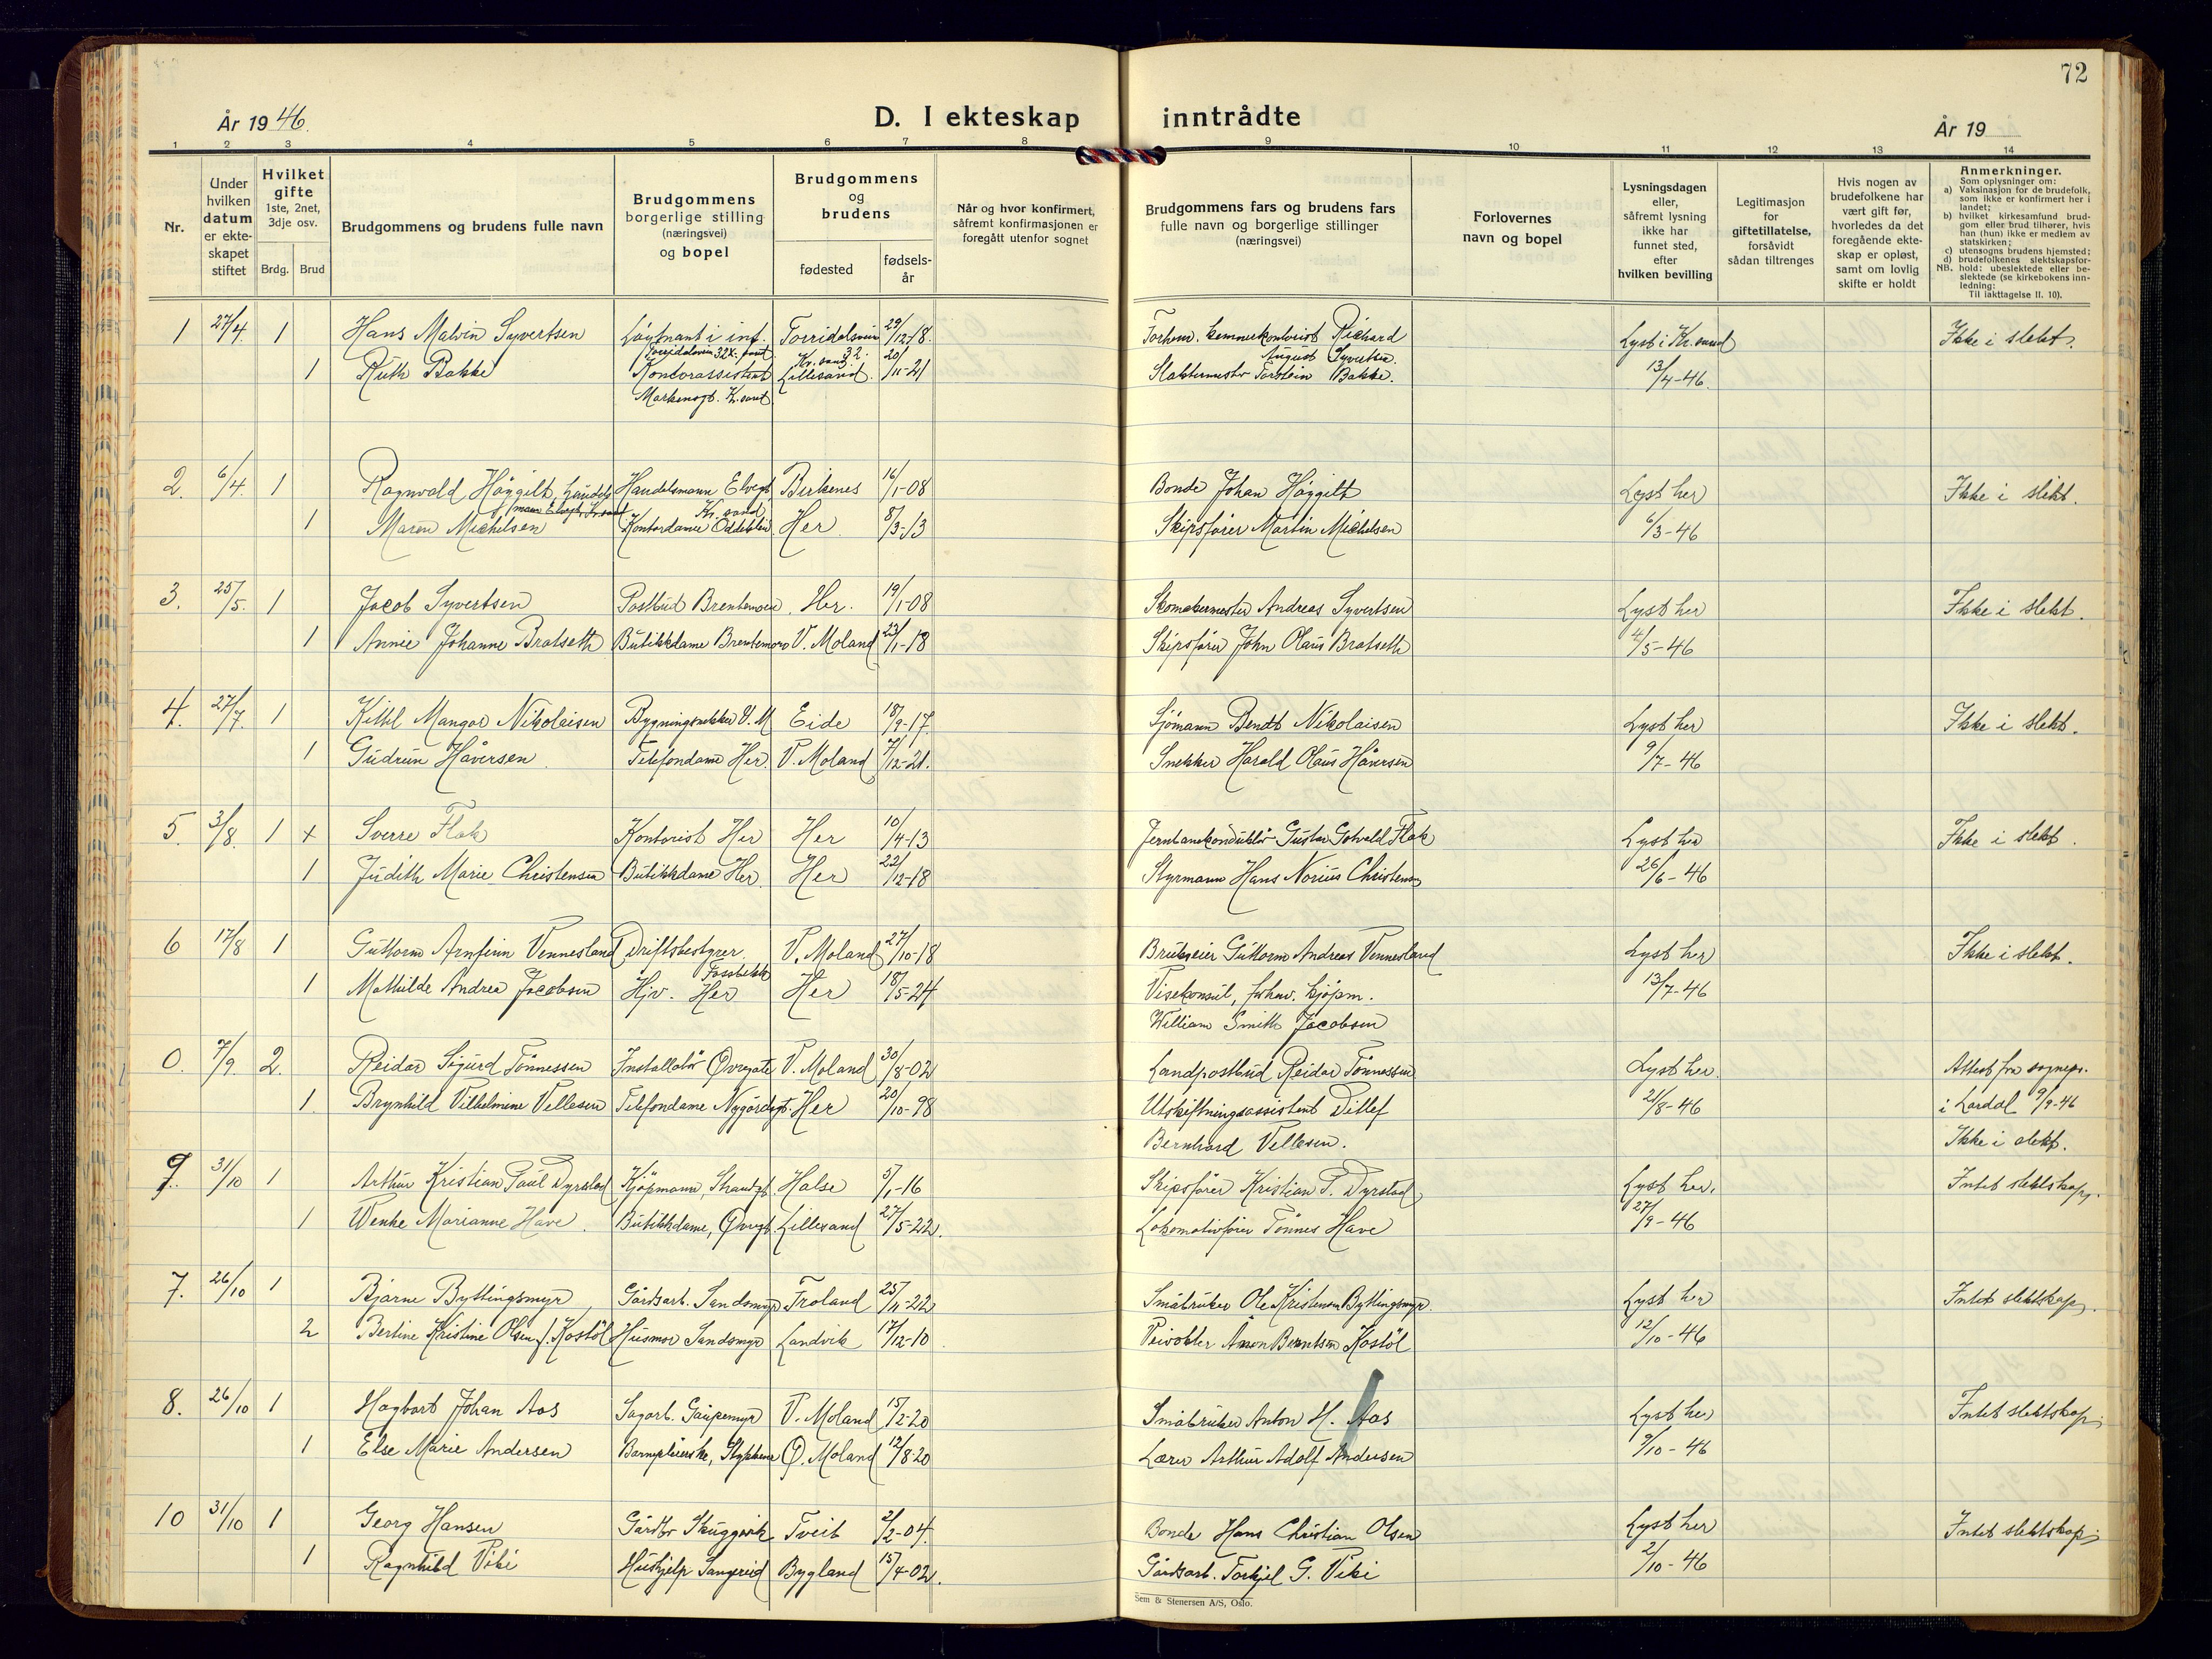 72
År 1946.
D. I ekteskap inntrådte
År 19
1 2 3 4 5 6 7 8 9 10 11 12 13 14
Nr.
Under hvilken datum er ekteskapet stiftet
Hvilket gifte 1ste, 2net, 3dje osv.
Brdg. Brud
Brudgommens og brudens fulle navn
Brudgommens borgerlige stilling (næringsvei) og bopel
Brudgommens og brudens
fødested
fødselsår
Når og hvor konfirmert, såfremt konfirmasjonen er foregått utenfor sognet
Brudgommens fars og brudens fars fulle navn og borgerlige stillinger (næringsvei)
Forlovernes navn og bopel
Lysningsdagen eller, såfremt lysning ikke har funnet sted, efter hvilken bevilling
Legitimasjon for giftetillatelse, forsåvidt sådan tiltrenges
Hvis nogen av brudefolkene har vært gift før, hvorledes da det foregående ekteskap er opløst, samt om lovlig skifte er holdt
Anmerkninger.
Som oplysninger om:
a) Vaksinasjon for de brudefolk, som ikke er konfirmert her i landet;
b) hvilket kirkesamfund brudgom eller brud tilhører, hvis han (hun) ikke er medlem av statskirken;
c) utensogns brudens hjemsted;
d) brudefolkenes slektskapsforhold: ubeslektede eller beslektede (se kirkebokens innledning:
NB. Til iakttagelse II. 10).
1 27/4. 1 Hans Malvin Syvertsen Løytnant i inf. Torridalsvein 29/12-18. Forhenv. kemnerkontorist Richard Lyst i Kr.sand Ikke i slekt.
Torridalsvein 32 Kr. sand 32. Kr. sand August Syvertsen
1 Ruth Bakke Kontorassistent Lillesand. 20/11-21 Slaktermester Torstein Bakke. 13/4-46.
Markensgt. Kr. sand
2. 6/4. 1 Ragnvald Høygilt, handels Handelsmann Elvegt Birkenes 16/1-08 Bonde Johan Høygilt Lyst her Ikke i slekt.
mann Elvegt. Kr. sand Kr. sand
1 Maren Michelsen Kontordame Her 8/3-13 Skipsfører Martin Michelsen 6/3-46
3. 25/5. 1 Jacob Syvertsen Postbud Brentemoen Her. 19/1-08 Skomakermester Andreas Syvertsen Lyst her Ikke i slekt.
1 Annie Johanne Bratseth Butikkdame Brentemoen V. Moland 23/1-18 Skipsfører John Olaus Bratseth 4/5-46
4. 27/7. 1 Kittil Mangor Nikolaisen Bygningsnekker V. M Eide 18/9-17. Sjømann Bendt Nikolaisen Lyst her Ikke i slekt.
1 Gudrun Håversen Telefondame Her. V. Moland 7/12-21. Snekker Harald Olaus Håversen 9/7-46
5. 3/8. 1 + Sverre Flak Kontorist Her Her 10/4-13 Jernbanekonduktør Gustav Gotvald Flak Lyst her Ikke i slekt.
1 Judith Marie Christensen Butikkdame Her. Her 22/12-18 Styrmann Hans Norius Christensen 26/6-46
6 17/8 1 Guttorm Arnfinn Vennesland Driftsbestyrer V. Moland 27/10-18 Brukseier Guttorm Andreas Vennesland Lyst her Ikke i slekt.
Fossbekk
1 Mathilde Andrea Jacobsen Hjv. Her Her 18/5-24 Visekonsul, forhav. kjøpm. 13/7-46
William Smith Jacobsen
0. 7/9. 2. Reidar Sigurd Tønnessen Installatør Øvregate V. Moland 30/8-02 Landpostbud Reidar Tønnessen Lyst her. Attest fra sognepr.
1. Brynhild Vilhelmine Vellesen Telefondame Nygårdsgt. Her 20/10-98 Utskiftningsassistent Ditlef 21/8-46 i Lardal 9/9-46
Bernhard Vellesen. Ikke i slekt.
9. 31/10 1 Arthur Kristian Paul Dyrstad Kjøpmann, Strandgt. Halse 5/1-16 Skipsfører Kristian P. Dyrstad Lyst her. Intet slektskap.
1 Wenke Marianne Have. Butikkdame, Øvregt. Lillesand 27/5-22. Lokomotivfører Tønnes Have 27/9-46
7. 26/10 1 Bjarne Byttingsmyr Gårdsarb. Sandsmyr Froland 25/11-22 Småbruker Ole Kristensen Byttingsmyr. Lyst her Intet slektskap.
2 Bertine Kristine Olsen f. Kostøl Husmor Sandsmyr Landvik 17/12-10 Veivokter Berntsen Kostøl 12/10-46
8. 26/10 1 Hagbart Johan Aas Sagarb. Gaupemyr V. Moland 15/2-20 Småbruker Anton H. Aas Lyst her Intet slektskap.
1 Else Marie Andersen Barnepleierske, Ø. Moland 12/8-20 Lærer Arthur Adolf Andersen 9/10-46
10 31/10 1 Georg Hansen Gårdbr Skuggevik Tveit 2/2-04. Bonde Hans Christian Olsen Lyst her Intet slektskap.
1 Ragnhild Viki Hushjelp Sangereid Bygland 15/4-02. Gårdsarb. Torkjel G. Viki 2/10-46
Sem & Stenersen A/S, Oslo.